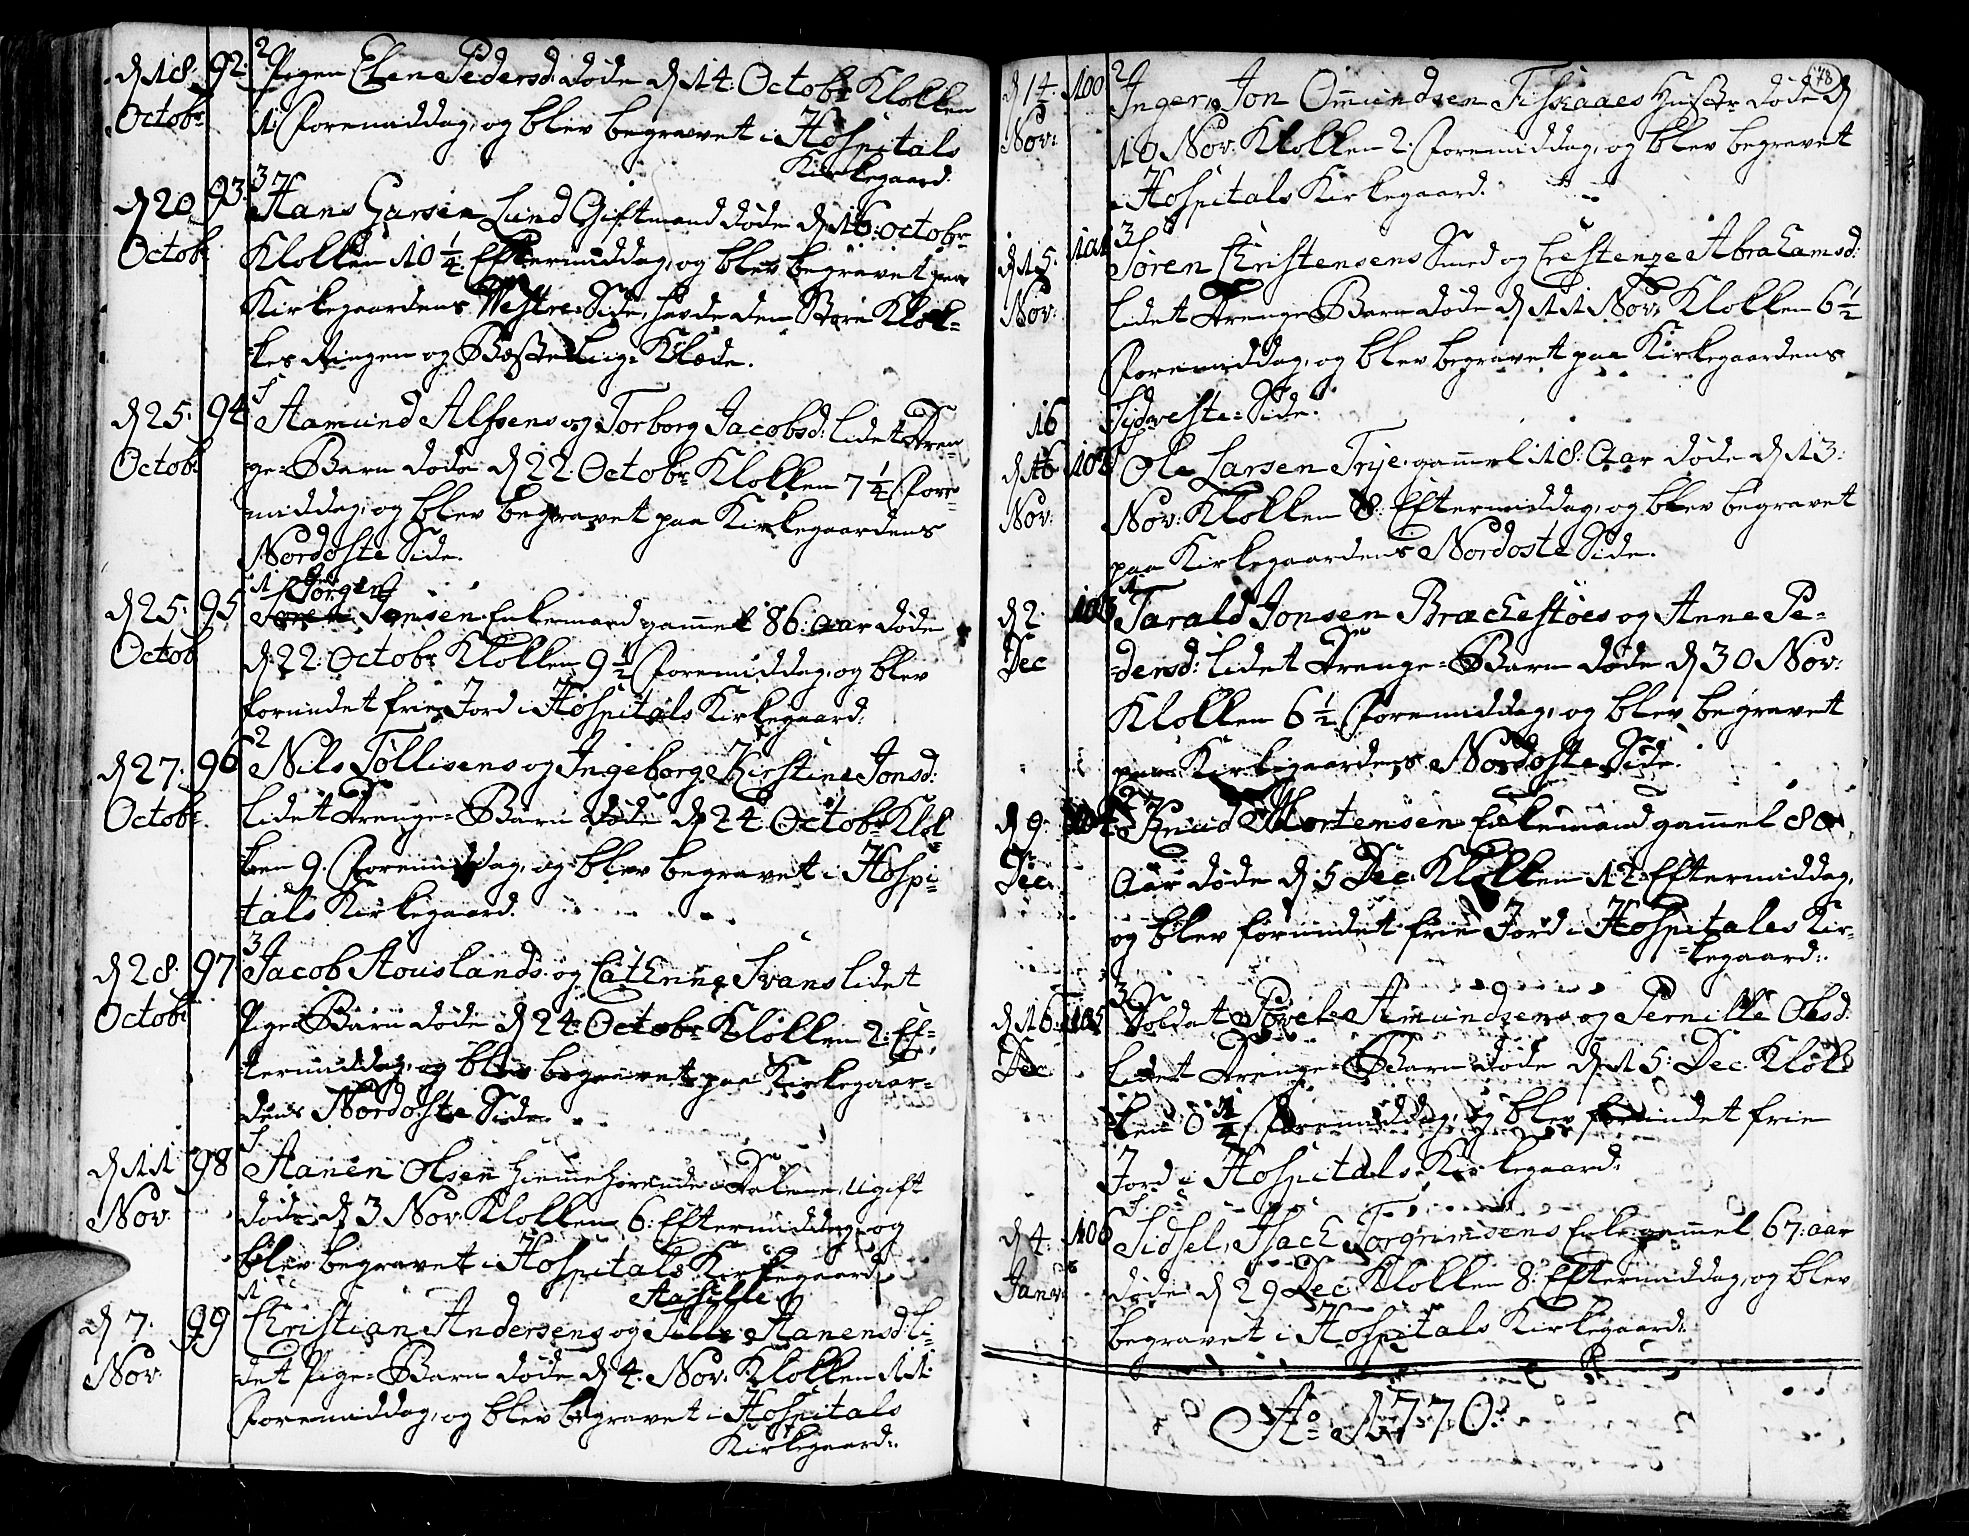 d 18. 92. 2 Pigen Elen Pedersd. døde d 14. Octobr Klokken
Octobr 11 Formiddag, og blev begravet i Hospitals
Kirkegaard.
d 20. 93. 3 Hans Larsen Lund Giftmand døde d 16. octobr
Octob: Klokken 10 1/4 Eftermiddag, og blev begravet paa
Kirkegaardens Westre-Side, havde den Store Klok-
kes Ringen og Klæde.
d 25. 94 Aamund Alfsens og Torborg Jacobsd: lidet Dren-
Octob: ge-Barn døde d 22. Octobr Klokken 7 1/4 For-
middag, og blev begravet paa Kirkegaardens
Nordoste Side.
1 Jørgen
d 25. 95 Jonsen Enkemand gammel 86. aar døde
Octob d. 22. Octobr Klokken 9 1/2 Formiddag, og blev
forundet frie Jord i Hospitals Kirkegaard:
d 27. 96 2 Nils Tøllisens og Ingeborg Kirstine Jonsd:
Octobr lidet Drenge-Barn døde d 24. Octobr Klok-
ken 9. Formiddag, og blev begravet i Hospi-
tals Kirkegaard.
d 28. 97 3 Jacob Stouslands og Cathrine Svans lidet
Octobr Pige-Barn døde d 24. Octobr Klokken 2. Ef-
termiddag, og blev begravet paa Kirkegaar-
dens Nordoste Side.
d 11 98 Aanen Olsen hiemehørende i Dalene, ugift
Nov. døde d 3 Nov. Klokken 6. Eftermiddag, og
blev begravet i Hospitals Kirkegaard.
1 Aasille
d 7. 99 Christian Andersens og Aanensd: li-
Nov. det Pige-Barn døde d 4. Nov. Klokken 11.
Formiddag, og blev begravet i Hospitals
Kirkegaard:.
78
d 14. 100 2 Inger, Jon Omundsen Fiskaaes døde d
Nov: 10 Nov. Klokken 2. Formiddag, og blev begravet
i Hospitals Kirkegaard.
d 15. 101 3 Søren Christensens Smed og Crestenze Abrahamsd:
Nov: lidet Drenge-Barn døde d 11 Nov. Klokken 6 1/2
Formiddag, og blev begravet paa Kirkegaardens
16 Sydveste-Side.
d 16 102 Ole Larsen Trye, gammel 18. Aar døde d 13.
Nov: Nov: Klokken 8. Eftermiddag, og blev begravet
paa Kirkegaardens Nordoste Side.
d 2. 103 1 Tarald Jonsen Brækestøes og Anne Pe-
Dec -dersd: lidet Drenge-Barn døde d 30 Nov:
Klokken 6 1/2 Formiddag, og blev begravet
paa Kirkegaardens Nordoste Side.
d 9. 104 2 Knud Mortensen Enkemand gammel 80
Dec. Aar døde d 5 Dec. Klokken 12. Eftermiddag,
og blev forundet frie Jord i Hospitales Kir-
-kegaard:.
d 16. 105 3 Soldat Povel Amundsens og Pernille Olsd:
Dec lidet Drenge-Barn døde d 15. Dec. Klok-
ken 8 1/4 Formiddag, og blev forundet frie
Jord i Hospitals Kirkegaard:
d 4. 106 Sidsel, Isach Torgrimsens Enke gammel 67. aar
Janv: døde d 29 Dec. Klokken 8. Eftermiddag, og blev
begravet i Hospitals Kirkegaard:.
Ao 1770.